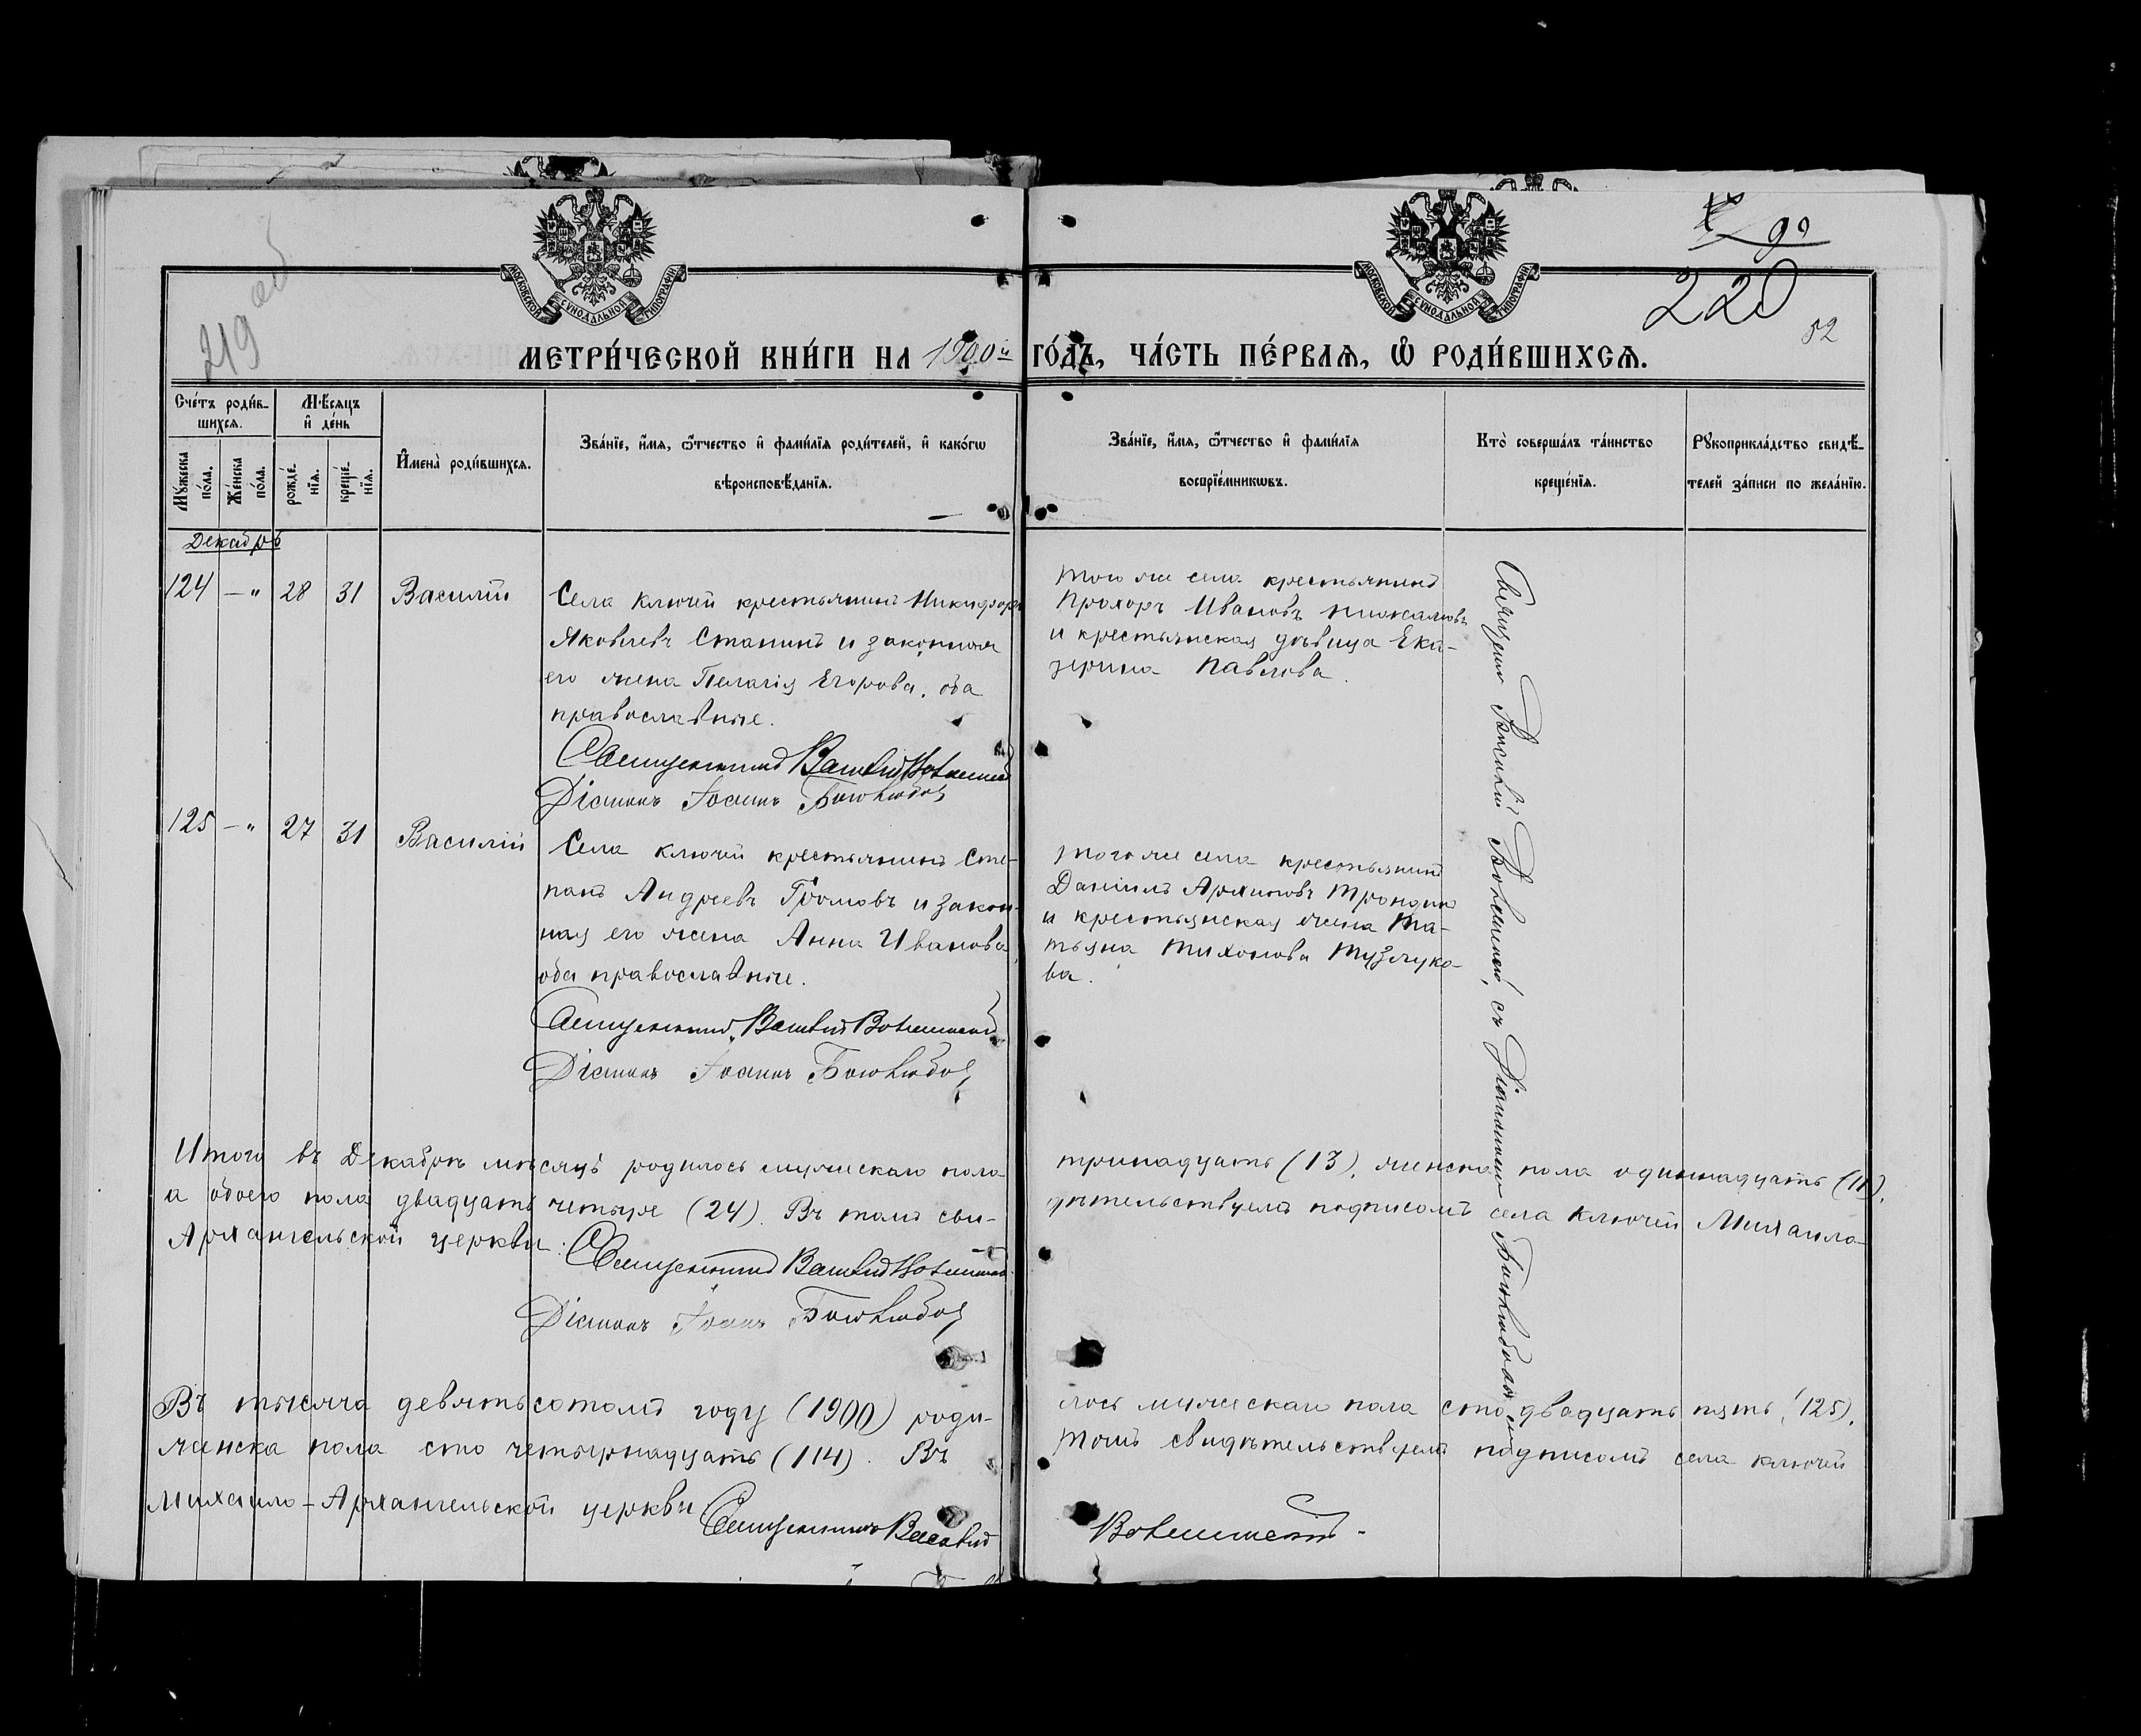 219 об
90
220
52
МОСКОВСКОЙ СУНОДАЛЬНОЙ ТИПОГРАФІИ
МОСКОВСКОЙ СУНОДАЛЬНОЙ ТИПОГРАФІИ
МЕТРИ́ЧЕСКОЙ КНИ́ГИ НА 1900й ГО́ДЪ, ЧА́СТЬ ПЕ́РВАЯ, Ѽ РОДИ́ВШИХСЯ.
Сче́тъ роди́в-
шихся.
Мꙋ́жеска по́ла.
Же́нска по́ла.
Мѣ́сяцъ
и҆ де́нь
рожде́-
нїя.
креще́-
нїя.
И҆мена̀ роди́вшихся.
Зва́нїе, и҆́мя, ѻ҆́тчество и҆ фами́лїя роди́телей, и҆ како́гѡ
вѣроисповѣ́данїя.
Зва́нїе, и҆́мя, ѻ҆́тчество и҆ фами́лїя
воспрїе́мникѡвъ.
Кто̀ соверша́лъ та́инство
креще́нїя.
Рꙋкоприкла́дство свидѣ́-
телей за́писи по жела́нїю.
Декабрь
124 — " 28 31 Василій
Села Ключей крестьянинъ Никифоръ
Яковлевъ Станинъ и законная
его жена Пелагія Егорова, оба
православные.
Священникъ Василій
Діаконъ Іоаннъ Боголюбовъ
Того же села крестьянинъ
Прохоръ Ивановъ
и крестьянская дѣвица Ека-
терина Павлова.
Священникъ Василій съ Діакономъ Боголюбовымъ
125 — " 27 31 Василій
Села Ключей крестьянинъ Сте-
панъ Андреевъ Громовъ и закон-
ная его жена Анна Иванова
оба православные.
Священникъ Василій
Діаконъ Іоаннъ Боголюбовъ
Того же села крестьянинъ
Даніилъ Архиповъ
и крестьянская жена Та-
тьяна Тихонова Тузлуко-
ва.
Итого въ Декабрѣ мѣсяцѣ родилось мужескаго пола тринадцать (13), женска пола одиннадцать (11),
а обоего пола двадцать четыре (24). Въ томъ сви- дѣтельствуемъ подписомъ села Ключей Михаило-
Архангельской церкви:
Священникъ Василій
Діаконъ Іоаннъ Боголюбовъ
Въ тысяча девятьсотомъ году (1900) роди- лось мужескаго пола сто двадцать пять (125),
женска пола сто четырнадцать (114). Въ томъ свидѣтельствуемъ подписомъ села Ключей
Михаило-Архангельской церкви
Священникъ Василій